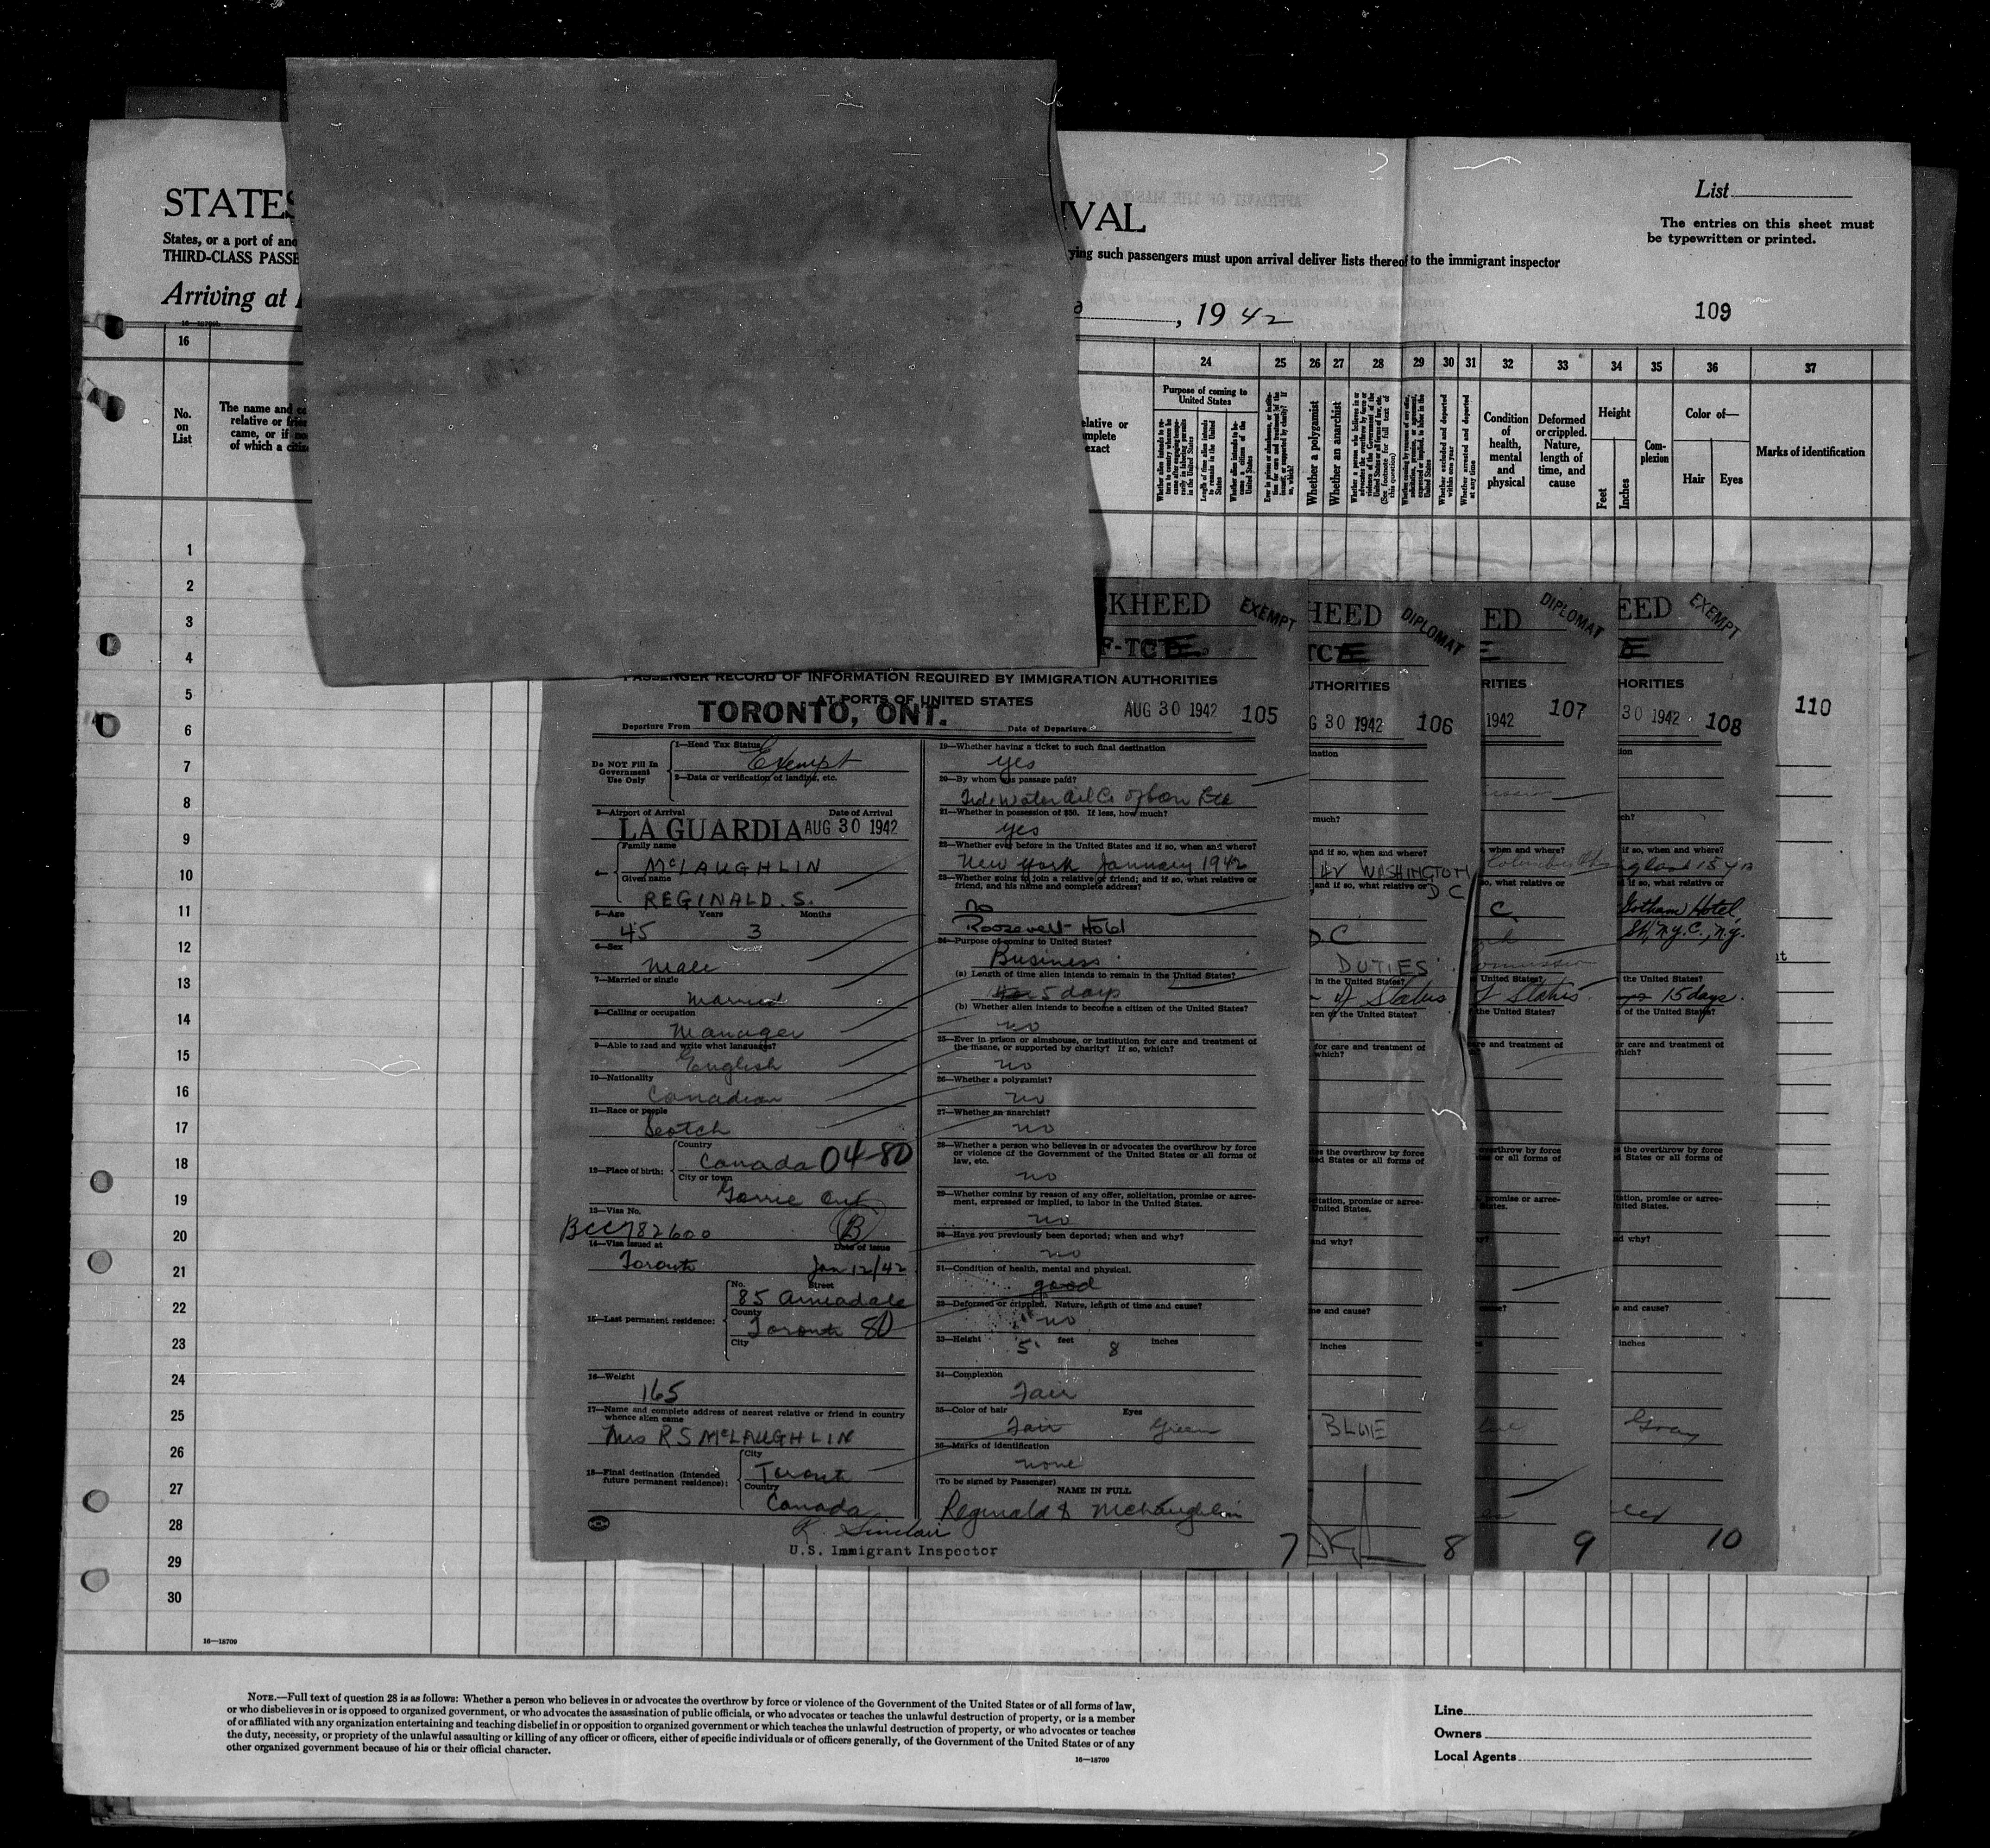 STATES
IVAL
List
States, or a port of ano
ying such passengers must upon arrival deliver lists thereof to the immigrant inspector
THIRD-CLASS PASSE
The entries on this sheet must
be typewritten or printed.
Arriving at
, 19 42
109
16 24 25 26 27 28 29 30 31 32 33 34 35 36 37
No.
on
List
The name and
relative or
came, or if
of which a
elative or
mplete
exact
Purpose of coming to
United States
Whether a polygamist
Whether an anarchist
Whether excluded and deported within one year
Whether arrested and deported at any time
Condition
of
health,
mental
and
physical
Deformed
or crippled.
Nature,
length of
time, and
cause
Height
Feet
Inches
Com-
plexion
Color of—
Hair
Eyes
Marks of identification
1
2
3
4
5
6
7
8
9
10
11
12
13
14
15
16
17
18
19
20
21
22
23
24
25
26
27
28
29
30
16—18709
KHEED EXEMPT
F-TC
PASSENGER RECORD OF INFORMATION REQUIRED BY IMMIGRATION AUTHORITIES
AT PORTS OF UNITED STATES
Departure From TORONTO, ONT. Date of Departure AUG 30 1942 105
Do NOT Fill In
Government
Use Only
1—Head Tax Status
Exempt
2—Data or verification of landing, etc.
3—Airport of Arrival Date of Arrival
LA GUARDIA AUG 30 1942
4— Family name
McLAUGHLIN
Given name
REGINALD. S.
5—Age Years Months
45 3
6—Sex
Male
7—Married or single
Married
8—Calling or occupation
Manager
9—Able to read and write what languages?
English
10—Nationality
Canadian
11—Race or people
Scotch
12—Place of birth:
Country
Canada 04-80
City or town
Gorrie Ont
13—Visa No.
BCC 782600 B
14—Visa issued at Date of issue
Toronto Jan 12/42
15—Last permanent residence:
No. Street
85 Armadale
County
Toronto 80
City
16—Weight
165
17—Name and complete address of nearest relative or friend in country
whence alien came
Mrs R S McLAUGHLIN
18—Final destination (Intended
future permanent residence):
City
Toronto
Country
Canada
R. Sinclair
U.S. Immigrant Inspector
19—Whether having a ticket to such final destination
yes
20—By whom was passage paid?
Tide Water Oil Co
21—Whether in possession of $50. If less, how much?
yes
22—Whether ever before in the United States and if so, when and where?
New York January 1942
23—Whether going to join a relative or friend; and if so, what relative or
friend, and his name and complete address?
no
Roosevelt Hotel
24—Purpose of coming to United States?
Business
(a) Length of time alien intends to remain in the United States?
5 days
(b) Whether alien intends to become a citizen of the United States?
no
25—Ever in prison or almshouse, or institution for care and treatment of
the insane, or supported by charity? If so, which?
no
26—Whether a polygamist?
no
27—Whether an anarchist?
no
28—Whether a person who believes in or advocates the overthrow by force
or violence of the Government of the United States or all forms of
law, etc.
no
29—Whether coming by reason of any offer, solicitation, promise or agree-
ment, expressed or implied, to labor in the United States.
no
30—Have you previously been deported; when and why?
no
31—Condition of health, mental and physical.
good
32—Deformed or crippled. Nature, length of time and cause?
no
33—Height feet inches
5 8
34—Complexion
Fair
35—Color of hair Eyes
Fair Green
36—Marks of identification
none
(To be signed by Passenger)
NAME IN FULL
Reginald S McLaughlin
7
HEED DIPLOMAT
TC
UTHORITIES
G 30 1942 106
nation
much?
and if so, when and where?
WASHINGTON
D C
and if so, what relative or
D.C
DUTIES
in the United States?
of Status
zen of the United States?
for care and treatment of
which?
es the overthrow by force
ed States or all forms of
itation, promise or agree-
United States.
and why?
me and cause?
inches
BLUE
8
ED DIPLOMAT
RITIES
1942 107
when and where?
so, what relative or
C
United States?
Status
the United States?
are and treatment of
verthrow by force
es or all forms of
promise or agree-
9
EED EXEMPT
HORITIES
30 1942 108
tion
ch?
if so, when and where?
15 yrs
d if so, what relative or
Gotham Hotel,
St, N.Y.C., N.Y.
the United States?
15 days.
n of the United States?
or care and treatment of
hich?
s the overthrow by force
d States or all forms of
tation, promise or agree-
nited States.
d why?
e and cause?
inches
Gray
10
110
NOTE.—Full text of question 28 is as follows: Whether a person who believes in or advocates the overthrow by force or violence of the Government of the United States or of all forms of law,
or who disbelieves in or is opposed to organized government, or who advocates the assassination of public officials, or who advocates or teaches the unlawful destruction of property, or is a member
of or affiliated with any organization entertaining and teaching disbelief in or opposition to organized government or which teaches the unlawful destruction of property, or who advocates or teaches
the duty, necessity, or propriety of the unlawful assaulting or killing of any officer or officers, either of specific individuals or of officers generally, of the Government of the United States or of any
other organized government because of his or their official character.
16—18709
Line
Owners
Local Agents